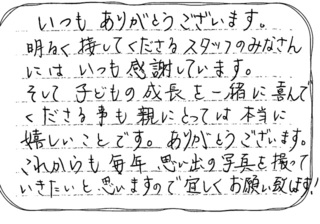 いつも ありがとうございます。
明るく 接してくださるスタッフのみなさん
には いつも 感謝しています。
そして 子どもの成長を一緒に喜んで
くださる事も 親にとっては 本当に
嬉しいことです。ありがとうございます。
これからも 毎年 思い出の写真を 撮って
いきたいと 思いますので 宜しくお願い致します!